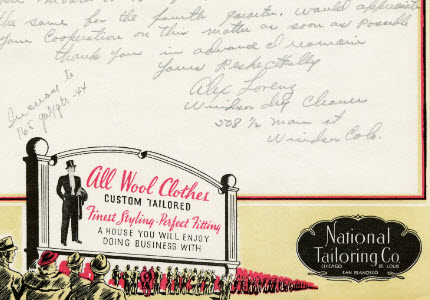 the same for the fourth quarter. would appreciate
your Cooperation on this matter as soon as possible
thank you in advance I remain
Yours Respectfully
Alex Lorenz
Windsor dry Cleaners
508 1/2 Main st
Windsor Colo.
All Wool Clothes
CUSTOM TAILORED
Finest Styling - Perfect Fitting
A HOUSE YOU WILL ENJOY
DOING BUSINESS WITH
National
Tailoring Co
CHICAGO ST. LOUIS
SAN FRANCISCO